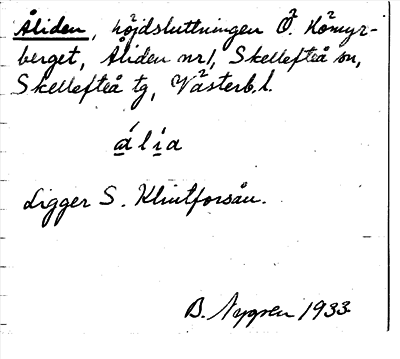 Åliden, höjdsluttningen Ö. Hömyr-
berget, Åliden nr 1, Skellefteå sn,
Skellefteå tg, Västerb. l.
á l i a
Ligger S. Klintforsån.
B. Nygren 1933